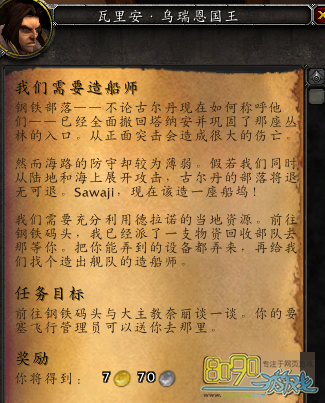 瓦里安·乌瑞恩国王
我们需要造船师
钢铁部落——不论古尔丹现在如何称呼他
们——已经全面撤回塔纳安并巩固了那座丛
林的入口。从正面突击会造成很大的伤亡。
然而海路的防守却较为薄弱。假若我们同时
从陆地和海上展开攻击，古尔丹的部落将退
无可退。Sawaji，现在该造一座船坞！
我们需要充分利用德拉诺的当地资源。前往
钢铁码头，我已经派了一支物资回收部队去
那等你。把你能弄到的设备都弄来，再给我
们找个造出舰队的造船师。
任务目标
前往钢铁码头与大主教奈丽谈一谈。你的要
塞飞行管理员可以送你去那里。
奖励
你将得到： 7 70
8090
专注于网页游戏